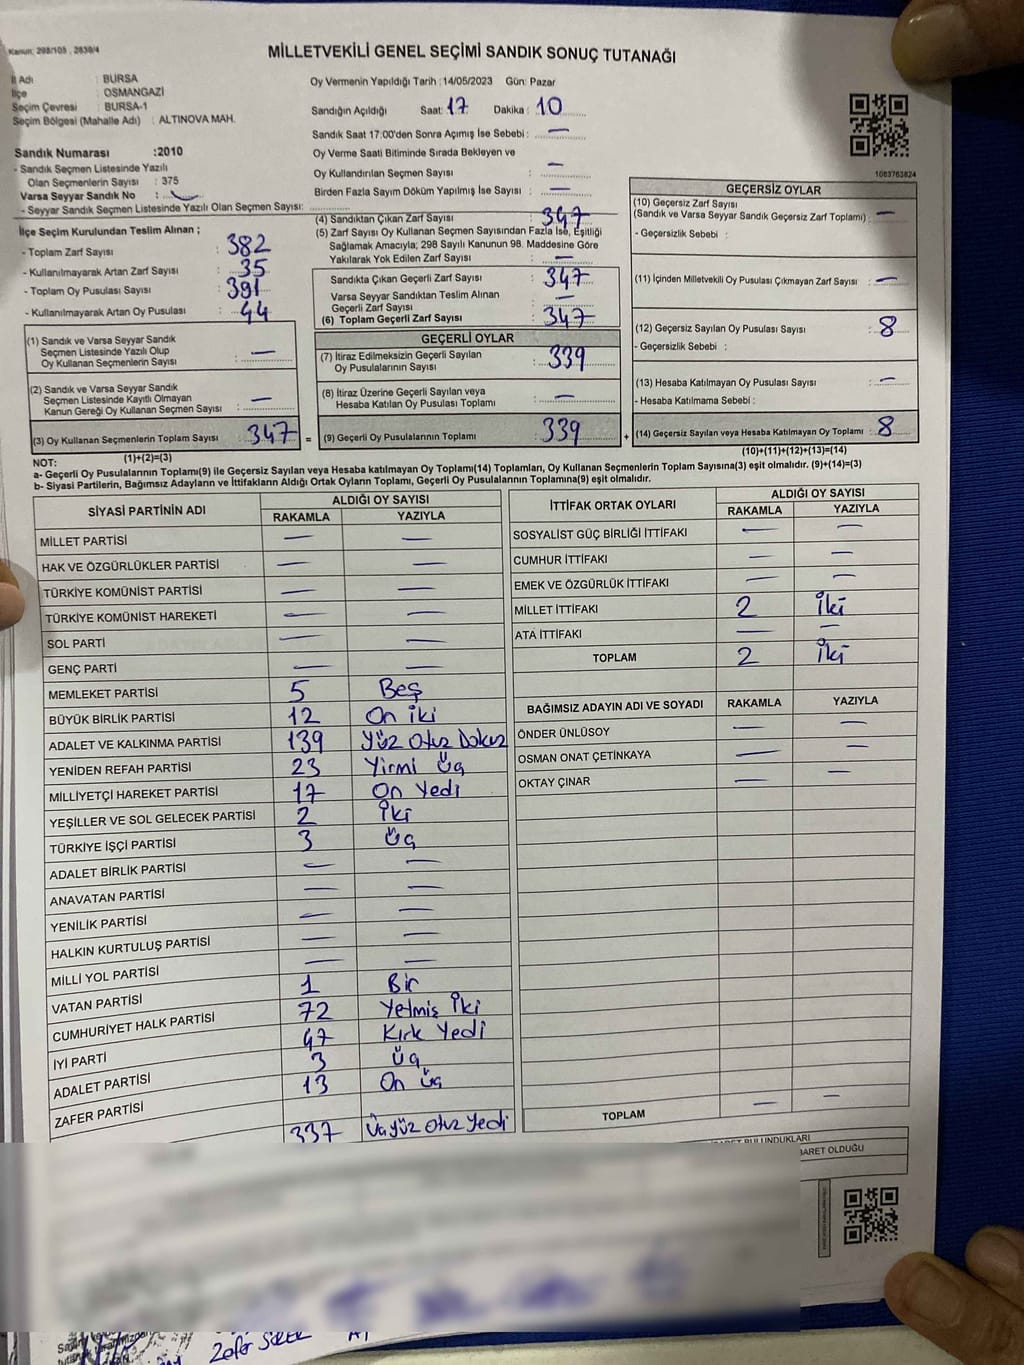 Kanun: 298/105 , 2839/4
MİLLETVEKİLİ GENEL SEÇİMİ SANDIK SONUÇ TUTANAĞI
İl Adı : BURSA
İlçe : OSMANGAZİ
Seçim Çevresi : BURSA-1
Seçim Bölgesi (Mahalle Adı) : ALTINOVA MAH.
Sandık Numarası :2010
- Sandık Seçmen Listesinde Yazılı
Olan Seçmenlerin Sayısı : 375
Varsa Seyyar Sandık No :
- Seyyar Sandık Seçmen Listesinde Yazılı Olan Seçmen Sayısı:
İlçe Seçim Kurulundan Teslim Alınan ;
- Toplam Zarf Sayısı : 382
- Kullanılmayarak Artan Zarf Sayısı : 35
- Toplam Oy Pusulası Sayısı : 391
- Kullanılmayarak Artan Oy Pusulası : 44
(1) Sandık ve Varsa Seyyar Sandık
Seçmen Listesinde Yazılı Olup
Oy Kullanan Seçmenlerin Sayısı : —
(2) Sandık ve Varsa Seyyar Sandık
Seçmen Listesinde Kayıtlı Olmayan
Kanun Gereği Oy Kullanan Seçmen Sayısı : —
(3) Oy Kullanan Seçmenlerin Toplam Sayısı : 347
(1)+(2)=(3)
Oy Vermenin Yapıldığı Tarih :14/05/2023 Gün: Pazar
Sandığın Açıldığı Saat: 17 Dakika : 10
Sandık Saat 17:00'den Sonra Açımış İse Sebebi : —
Oy Verme Saati Bitiminde Sırada Bekleyen ve
Oy Kullandırılan Seçmen Sayısı : —
Birden Fazla Sayım Döküm Yapılmış İse Sayısı : —
(4) Sandıktan Çıkan Zarf Sayısı : 347
(5) Zarf Sayısı Oy Kullanan Seçmen Sayısından Fazla İse, Eşitliği
Sağlamak Amacıyla; 298 Sayılı Kanunun 98. Maddesine Göre
Yakılarak Yok Edilen Zarf Sayısı : —
Sandıkta Çıkan Geçerli Zarf Sayısı : 347
Varsa Seyyar Sandıktan Teslim Alınan
Geçerli Zarf Sayısı : —
(6) Toplam Geçerli Zarf Sayısı : 347
GEÇERLİ OYLAR
(7) İtiraz Edilmeksizin Geçerli Sayılan
Oy Pusulalarının Sayısı : 339
(8) İtiraz Üzerine Geçerli Sayılan veya
Hesaba Katılan Oy Pusulası Toplamı : —
= (9) Geçerli Oy Pusulalarının Toplamı : 339
1083763824
GEÇERSİZ OYLAR
(10) Geçersiz Zarf Sayısı
(Sandık ve Varsa Seyyar Sandık Geçersiz Zarf Toplamı) : —
- Geçersizlik Sebebi :
(11) İçinden Milletvekili Oy Pusulası Çıkmayan Zarf Sayısı : —
(12) Geçersiz Sayılan Oy Pusulası Sayısı : 8
- Geçersizlik Sebebi :
(13) Hesaba Katılmayan Oy Pusulası Sayısı : —
- Hesaba Katılmama Sebebi :
+ (14) Geçersiz Sayılan veya Hesaba Katılmayan Oy Toplamı : 8
(10)+(11)+(12)+(13)=(14)
NOT:
a- Geçerli Oy Pusulalarının Toplamı(9) ile Geçersiz Sayılan veya Hesaba katılmayan Oy Toplamı(14) Toplamları, Oy Kullanan Seçmenlerin Toplam Sayısına(3) eşit olmalıdır. (9)+(14)=(3)
b- Siyasi Partilerin, Bağımsız Adayların ve İttifakların Aldığı Ortak Oyların Toplamı, Geçerli Oy Pusulalarının Toplamına(9) eşit olmalıdır.
SİYASİ PARTİNİN ADI ALDIĞI OY SAYISI
RAKAMLA YAZIYLA
MİLLET PARTİSİ — —
HAK VE ÖZGÜRLÜKLER PARTİSİ — —
TÜRKİYE KOMÜNİST PARTİSİ — —
TÜRKİYE KOMÜNİST HAREKETİ — —
SOL PARTİ — —
GENÇ PARTİ — —
MEMLEKET PARTİSİ 5 Beş
BÜYÜK BİRLİK PARTİSİ 12 On iki
ADALET VE KALKINMA PARTİSİ 139 Yüz Otuz Dokuz
YENİDEN REFAH PARTİSİ 23 Yirmi Üç
MİLLİYETÇİ HAREKET PARTİSİ 17 On Yedi
YEŞİLLER VE SOL GELECEK PARTİSİ 2 İki
TÜRKİYE İŞÇİ PARTİSİ 3 Üç
ADALET BİRLİK PARTİSİ — —
ANAVATAN PARTİSİ — —
YENİLİK PARTİSİ — —
HALKIN KURTULUŞ PARTİSİ — —
MİLLİ YOL PARTİSİ — —
VATAN PARTİSİ 1 Bir
CUMHURİYET HALK PARTİSİ 72 Yetmiş İki
İYİ PARTİ 47 Kırk Yedi
ADALET PARTİSİ 3 Üç
ZAFER PARTİSİ 13 On Üç
337 Üçyüz Otuz Yedi
İTTİFAK ORTAK OYLARI ALDIĞI OY SAYISI
RAKAMLA YAZIYLA
SOSYALİST GÜÇ BİRLİĞİ İTTİFAKI — —
CUMHUR İTTİFAKI — —
EMEK VE ÖZGÜRLÜK İTTİFAKI — —
MİLLET İTTİFAKI 2 İki
ATA İTTİFAKI — —
TOPLAM 2 İki
BAĞIMSIZ ADAYIN ADI VE SOYADI RAKAMLA YAZIYLA
ÖNDER ÜNLÜSOY — —
OSMAN ONAT ÇETİNKAYA — —
OKTAY ÇINAR — —
TOPLAM — —
BULUNDUKLARI
BARET OLDUĞU
Zafer